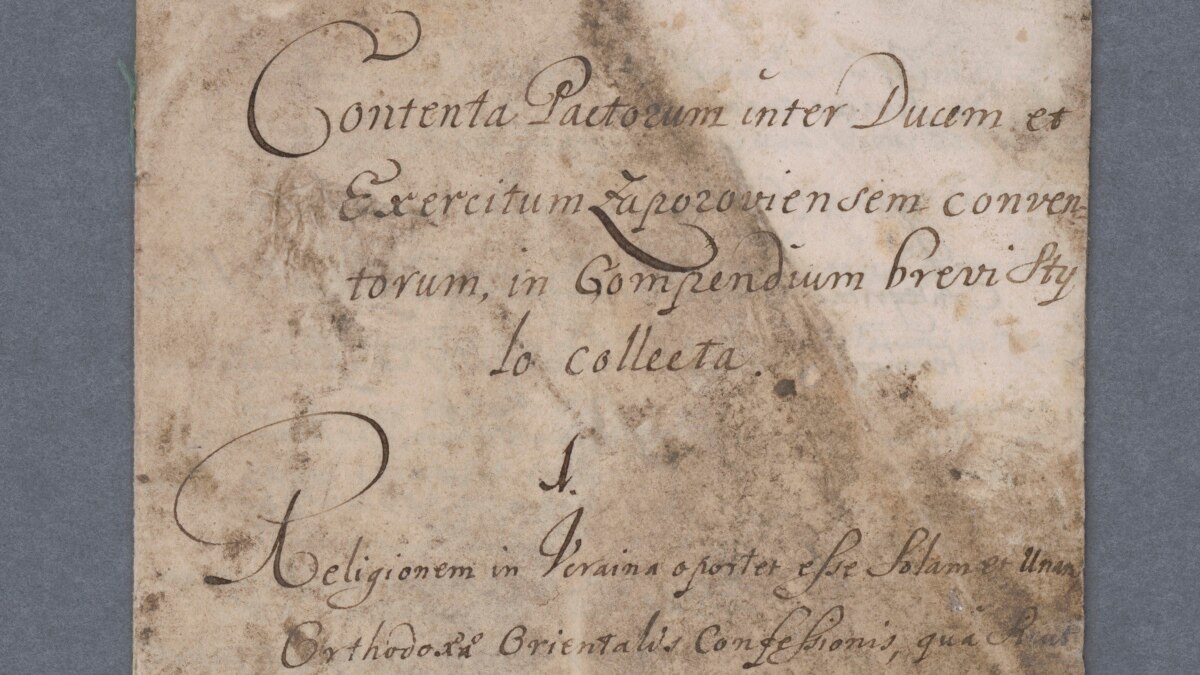 Contenta Pactorum inter Ducem et
Exercitum Zaporoviensem conven-
torum, in Compendium brevi Sty
lo collecta.
1.
Religionem in Vcraina oportet esse Solam et Unam
Orthodoxæ Orientalis Confessionis, qua